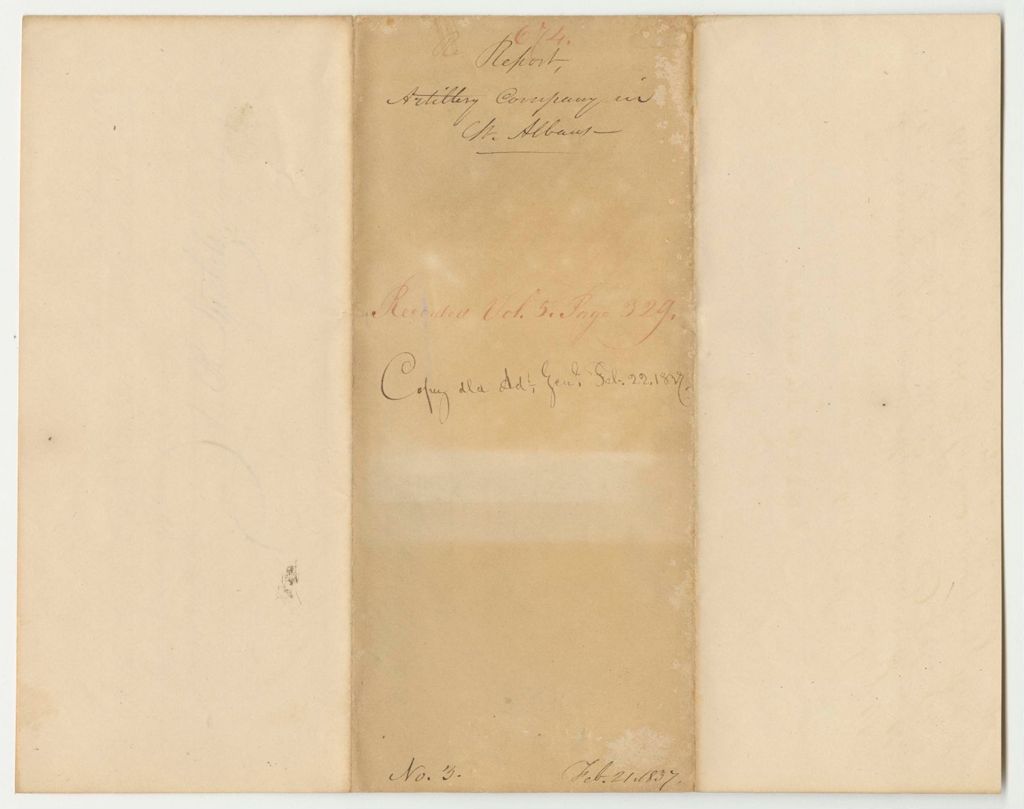 674.
Report,
Artillery Company in
St. Albans
Recorded Vol. 5. Page 329.
Copy dld Adt. Genl. Feb. 22. 1837.
No. 3.
Feb. 21. 1837.